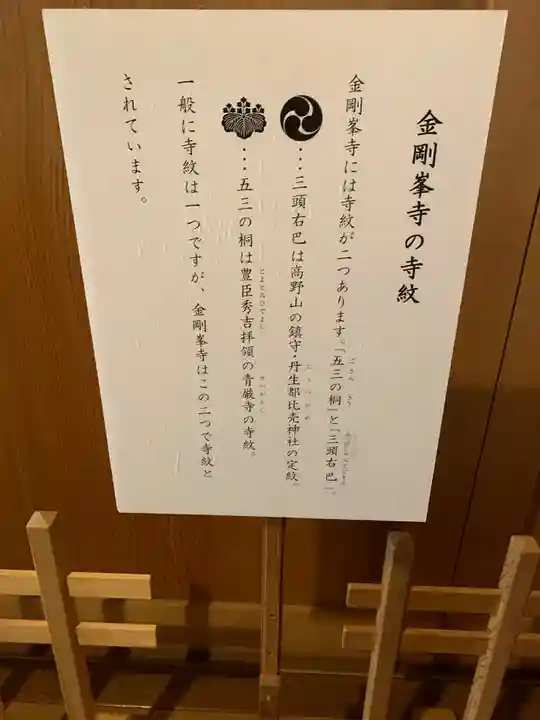 金剛峯寺の寺紋
金剛峯寺には寺紋が二つあります。「五三の桐」と「三頭右巴」。
ごさん きり
・・・三頭右巴は高野山の鎮守・丹生都比売神社の定紋。
・・・五三の桐は豊臣秀吉拝領の青巌寺の寺紋。
とよとみひでよし せいがんじ
一般に寺紋は一つですが、金剛峯寺はこの二つで寺紋と
されています。